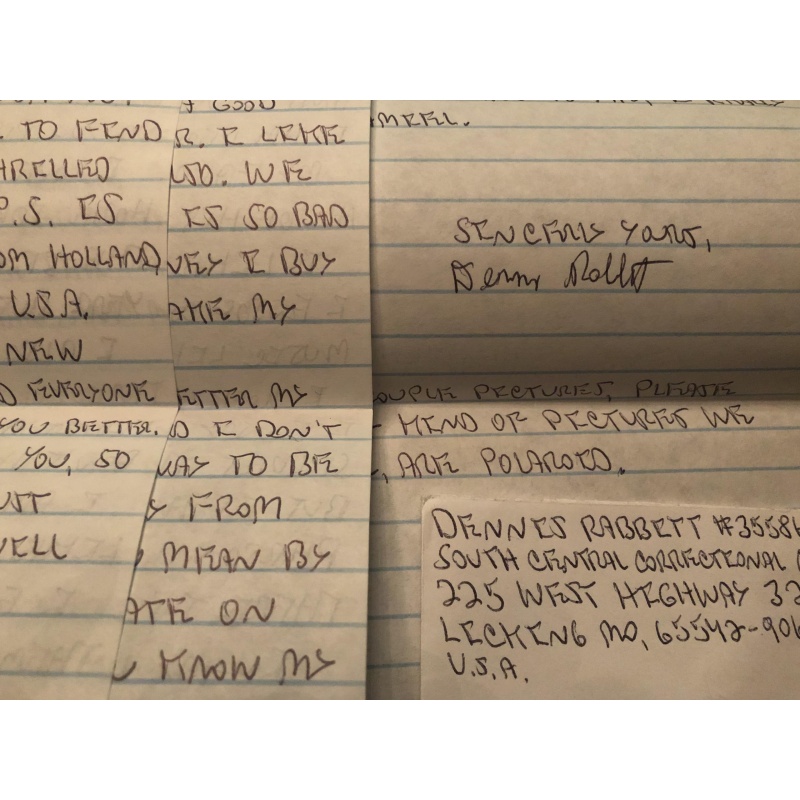 TO FIND
HRILLED
P.S. IS
OM HOLLAND,
U.S.A.
NEW
D EVERYONE
YOU BETTER.
YOU, SO
UST
GOOD
R. I LIKE
LSO. WE
IS SO BAD
I BUY
AKE MY
ETTER MY
D I DON'T
WAY TO BE
Y FROM
MEAN BY
ATE ON
KNOW MY
SINCERLY YOURS,
OUPLE PICTURES, PLEASE
KIND OF PICTURES WE
, ARE POLAROID.
DENNIS RABBITT #3558
SOUTH CENTRAL CORRECTIONAL
225 WEST HIGHWAY 32
LICKING MO, 65542-90
U.S.A.